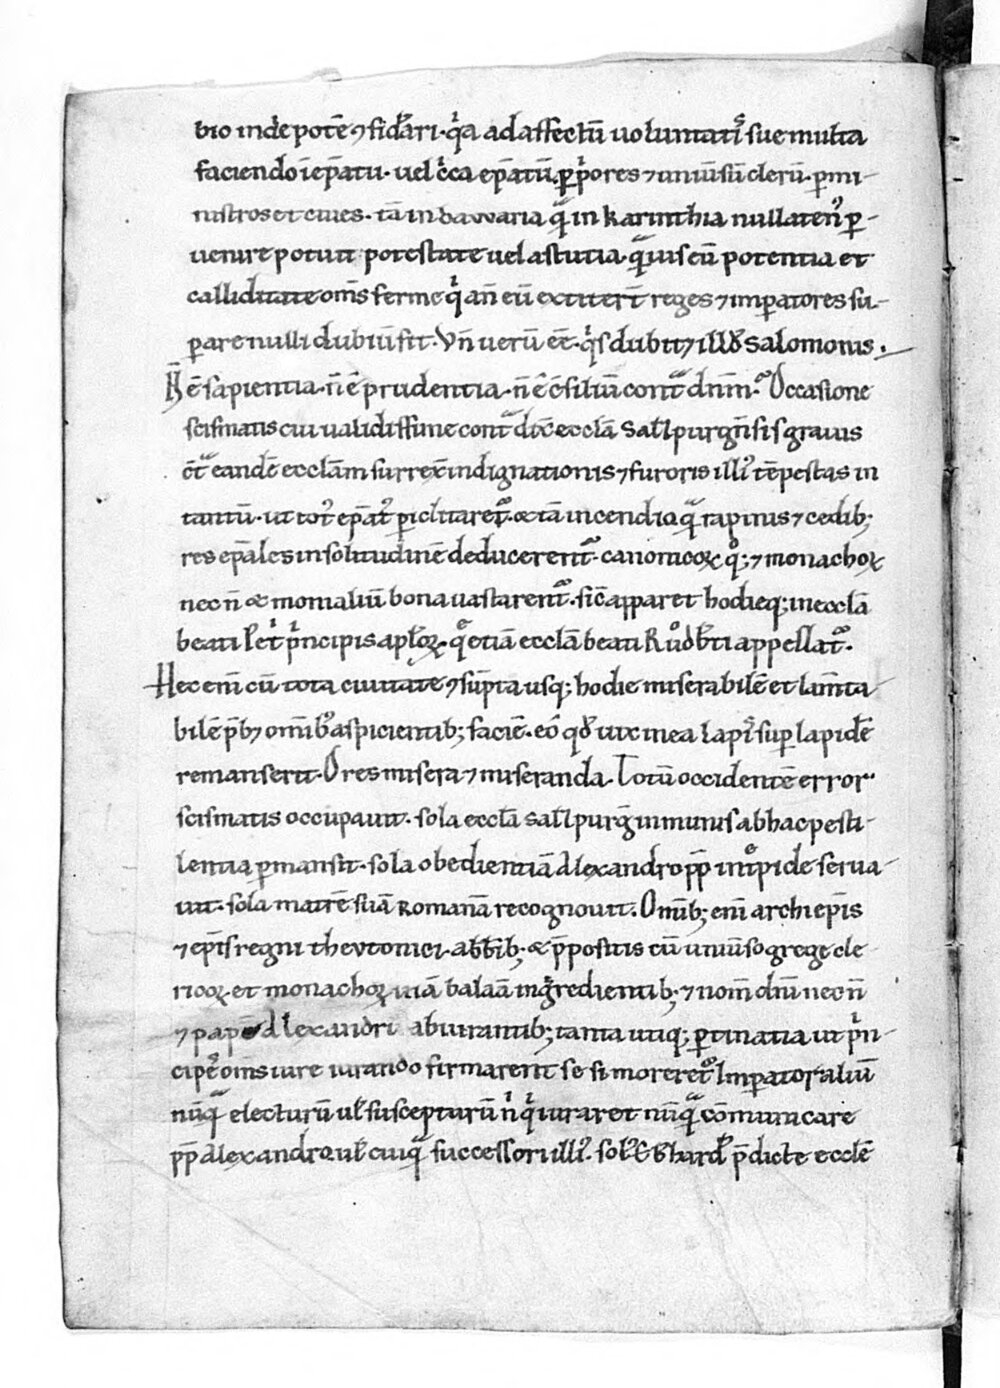 bio inde potē ⁊ fidări · qͥa ad affectū uoluntatiͥ sue multa
faciendo ī ep̄atu · uel c̄ca ep̄atū ꝑ p̄ores ⁊ uniūsū clerū · ꝑ mi-
nistros et ciues · tā in bawaria qͣ̄ in karinthia nullatenꝰ ꝑ-
uenire potuit potestate uel astutia · qͣ̄uis eū potentia et
calliditate om̄s ferme qͥ an̄ eū extiter̄t reges ⁊ imꝑatores su-
ꝑare nulli dubiū sit · Vn̄ uerū eē · qͥs dubit; illđ Salomonis .
N̄ ē sapientia · n̄ ē prudentia · n̄ ē c̄siliū contͣ dn̄m · Occasione
scismatis cui ualidissime contͣ dix̄ eccl̄a Salzpurgn̄sis grauis
c̄tͣ eandē eccl̄am surrex̄ indignationis ⁊ furoris illiꝰ tēpestas in
tantū · ut totꝰ ep̄atꝰ ꝑiclitaret᷑ · ac tā incendio qͣ̄ rapinis ⁊ cedib;
res ep̄ales in solitudinē deducerent᷑ · canonicoꝝ qͦ; ⁊ monachoꝝ
nec n̄ ac monialiū bona uastarent᷑ · sic̄ apparet hodieq; in eccl̄a
beati Petͥ pͥncipis apl̄oꝝ · qͤ etiā eccl̄a beati Rͮodb̄ti appellat᷑ .
Hec eni̅ cū tota ciuitate ⁊ sup̄ta usq; hodie miserabilē et lam̄ta-
bilē p̄b; om̄ibꝰ aspicientib; faciē · eo̅ qđ uix inea lapiͥ suꝑ lapidē
remanserit · O res misera ⁊ miseranda · Totū occidentē error
scismatis occupauit · sola eccl̄a Salzpurg̅ inmunis ab hac pesti-
lentia ꝑmansit · sola obedientiā Alexandro pp̄ intͤpide serua-
uit · sola matrē suā Romanā recognouit · Om̄ib; eni̅ archiep̄is
⁊ ep̄is regni thevtonici · abb̄ib; ac p̄positis cū uniuͤso grege cle-
ricoꝝ et monachoꝝ uiā balaā ingͣredientib; ⁊ nom̄ dn̄i nec n̄
⁊ pape Alexandri abiurantib; tanta utiq; ꝑtinatia ut pͥn-
cipeͤ om̄s iure iurando firmarent se si moreret᷑ Imꝑator aliū
nūqͣ̄ electurū ul̄ suscepturū nͥ qͥ iuraret nūqͣ̄ cōmunicare
pp̄ Alexandro ul̄ cuiqͣ̄ successori illiꝰ · solꝰ Eb̄hardꝰ p̄dicte eccl̄e